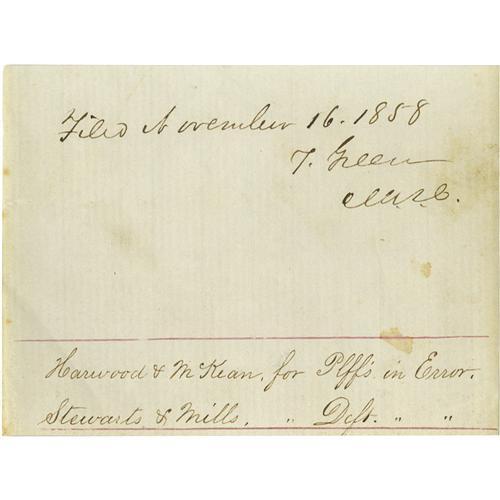 Filed November 16. 1858
T. Green
Harwood & McKean, for Plffs. in Error.
Stewarts & Mills, " Deft. " "